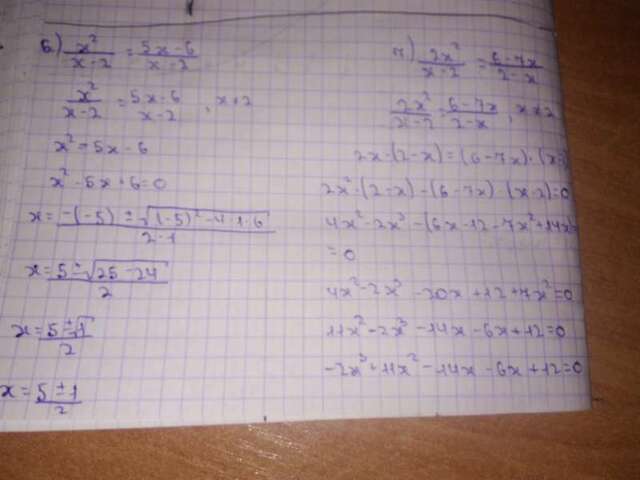 6.) x²/(x-2) = (5x-6)/(x-2)
x²/(x-2) = (5x-6)/(x-2), x≠2
x² = 5x-6
x²-5x+6=0
x = (-(-5) ± √((-5)²-4·1·6))/(2·1)
x = (5±√(25-24))/2
x = (5±√1)/2
x = (5±1)/2
7.) 2x²/(x-2) = (6-7x)/(2-x)
2x²/(x-2) = (6-7x)/(2-x), x≠2
2x·(2-x)=(6-7x)·(x-2)
2x²·(2-x)-(6-7x)·(x-2)=0
4x²-2x³-(6x-12-7x²+14x)=
=0
4x²-2x³-20x+12+7x²=0
11x²-2x³-14x-6x+12=0
-2x³+11x²-14x-6x+12=0